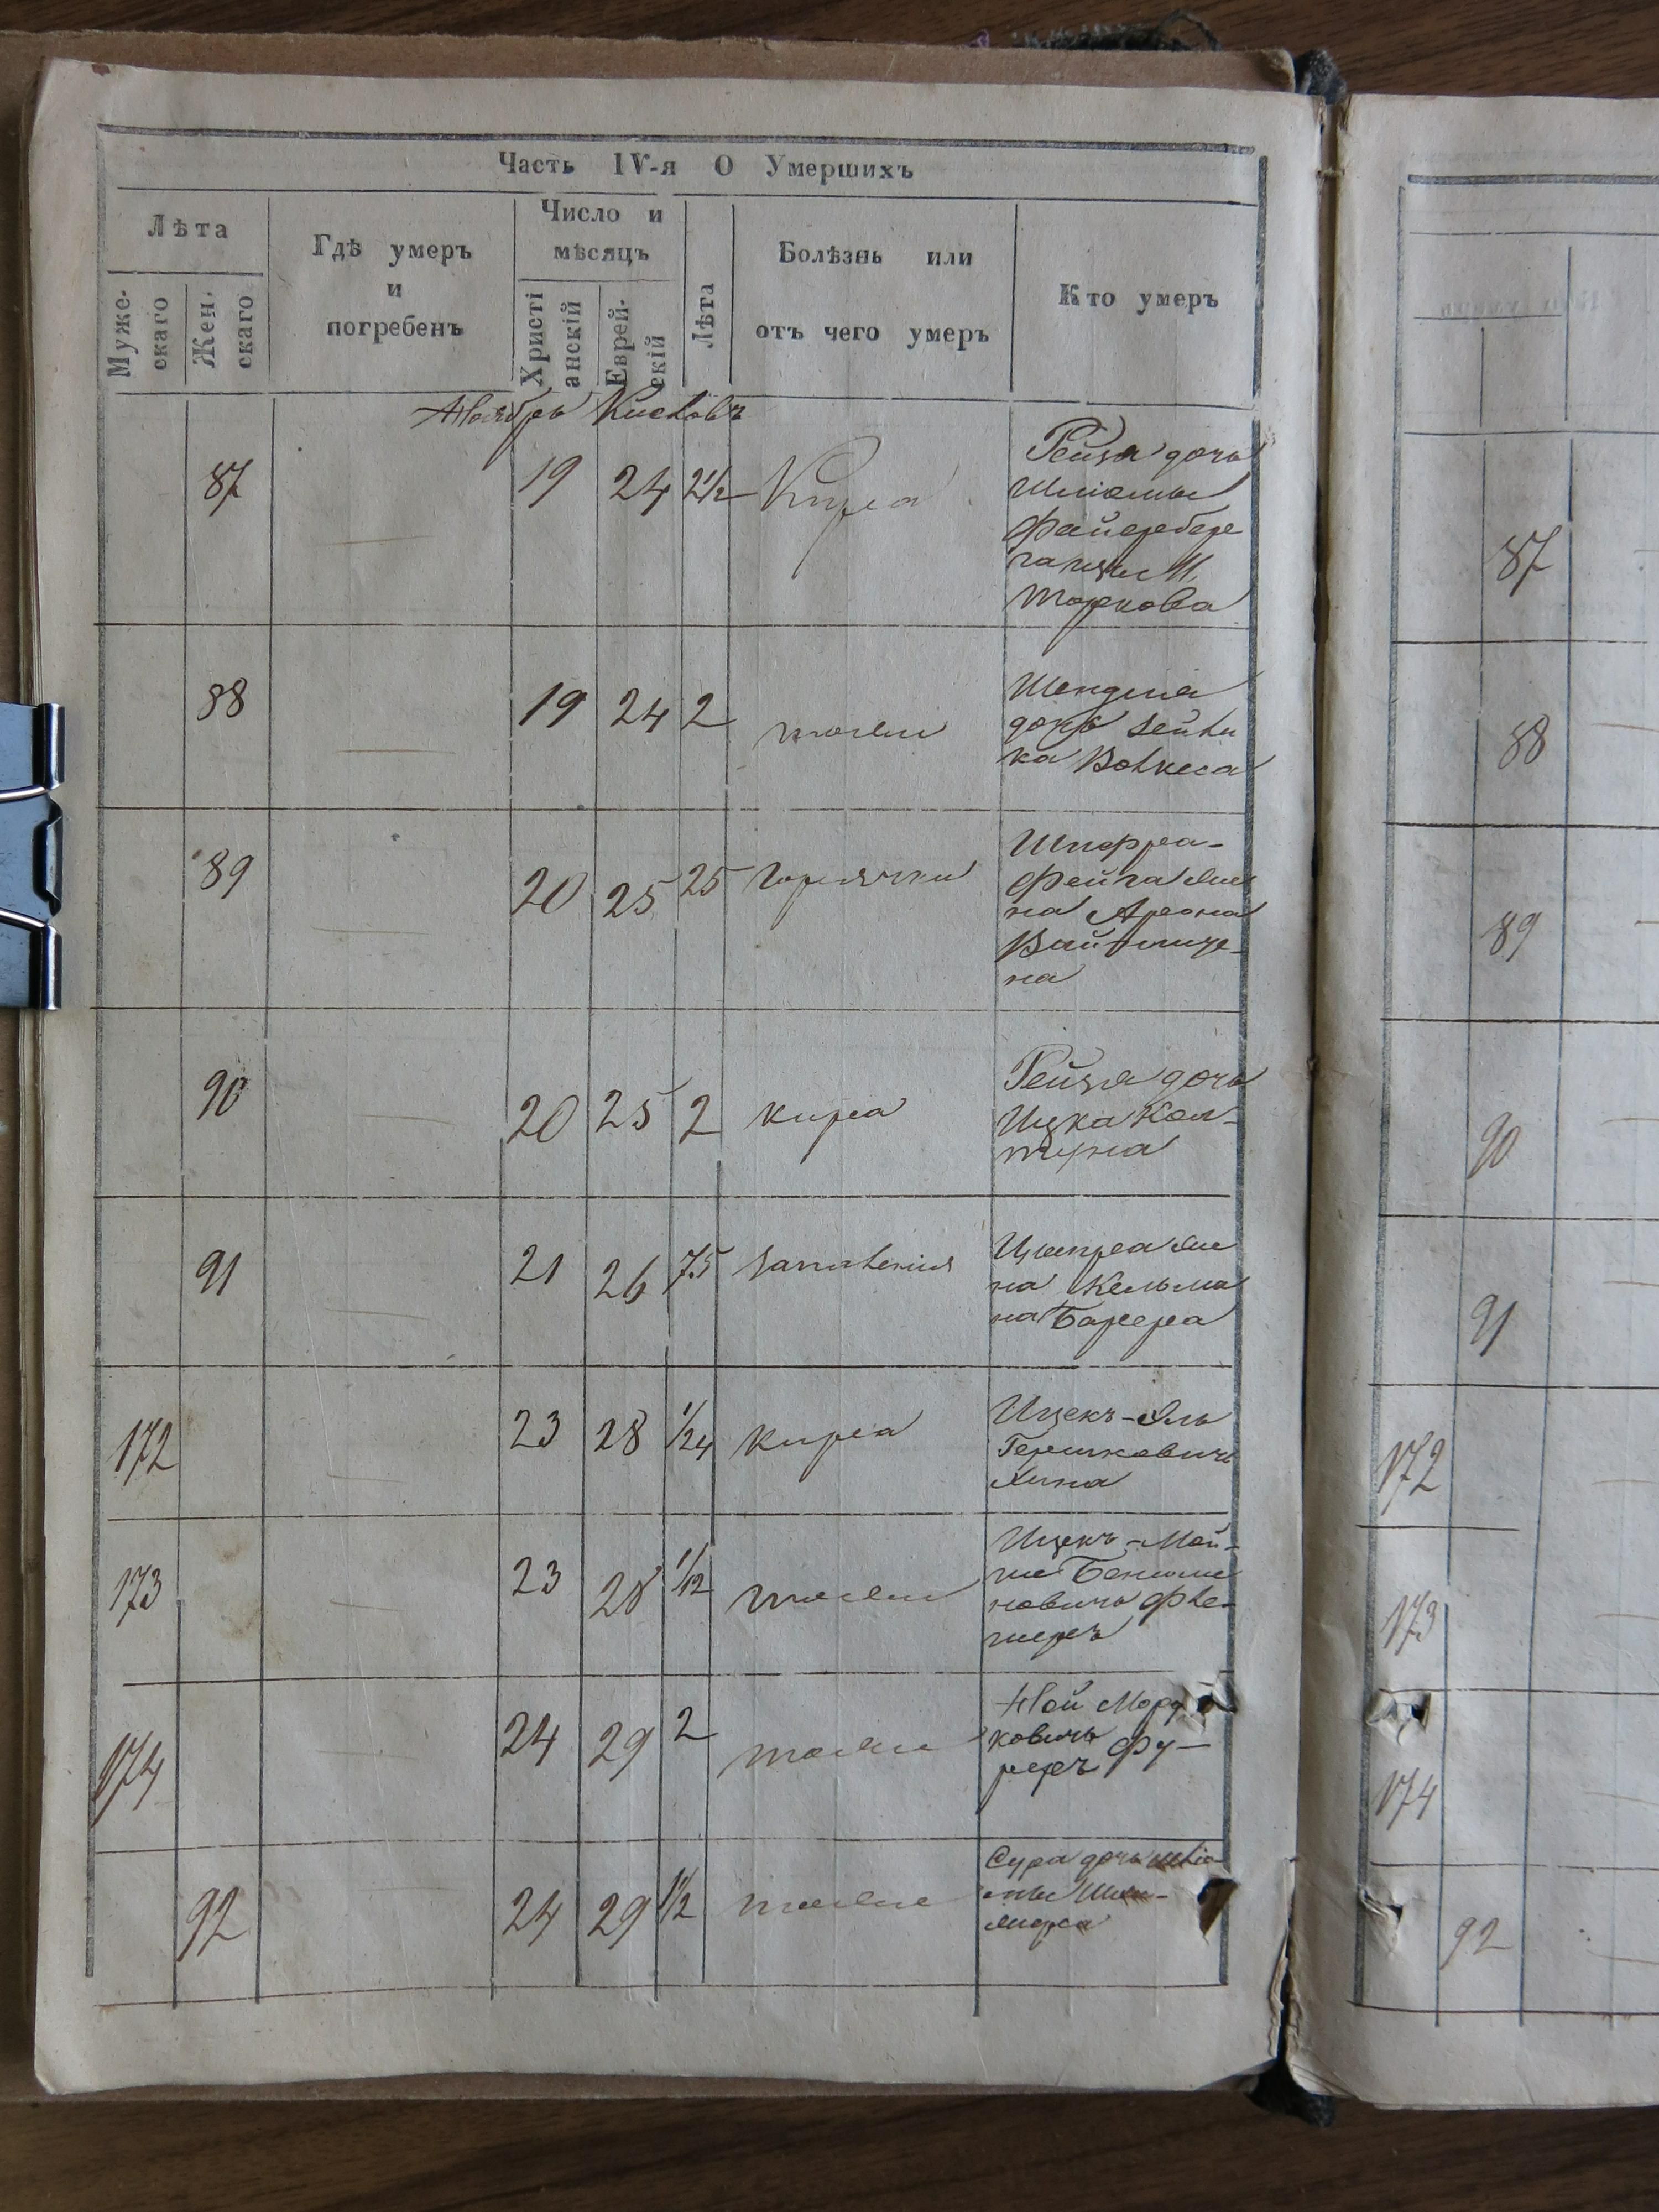 Часть IV-я О Умершихъ
Лѣта
Муже-
скаго
Жен-
скаго
Гдѣ умеръ
и
погребенъ
Число и
мѣсяцъ
Христі
анскій
Еврей-
скій
Лѣта
Болѣзнь или
отъ чего умеръ
Кто умеръ
Ноябрь Кислевъ
87 19 24 2½ Кира
Рейза дочь
Шліомы
Файербер
Торгова
88 19 24 2 тоже
Шендля
дочь Зейли
ка Волкеса
89 20 25 25 горячки
Шифра-
Фейга жы
на Арона
Вайнтще-
на
90 20 25 2 кира
Рейза дочь
Ицка Кол-
туна
91 21 26 75 запаленія
Ципра жы
на Кельма
на Барера
172 23 28 1/24 кира
Ицекъ-Эль
Гершковичъ
173 23 28 1/12 тоже
Ицекъ-Мой-
ше Бенюми
новичъ Фле-
шеръ
174 24 29 2 тоже
Ной Морд
ковичъ Фу-
реръ
92 24 29 1½ тоже
Сура дочь Шліо
мы
87
88
89
90
91
172
173
174
92